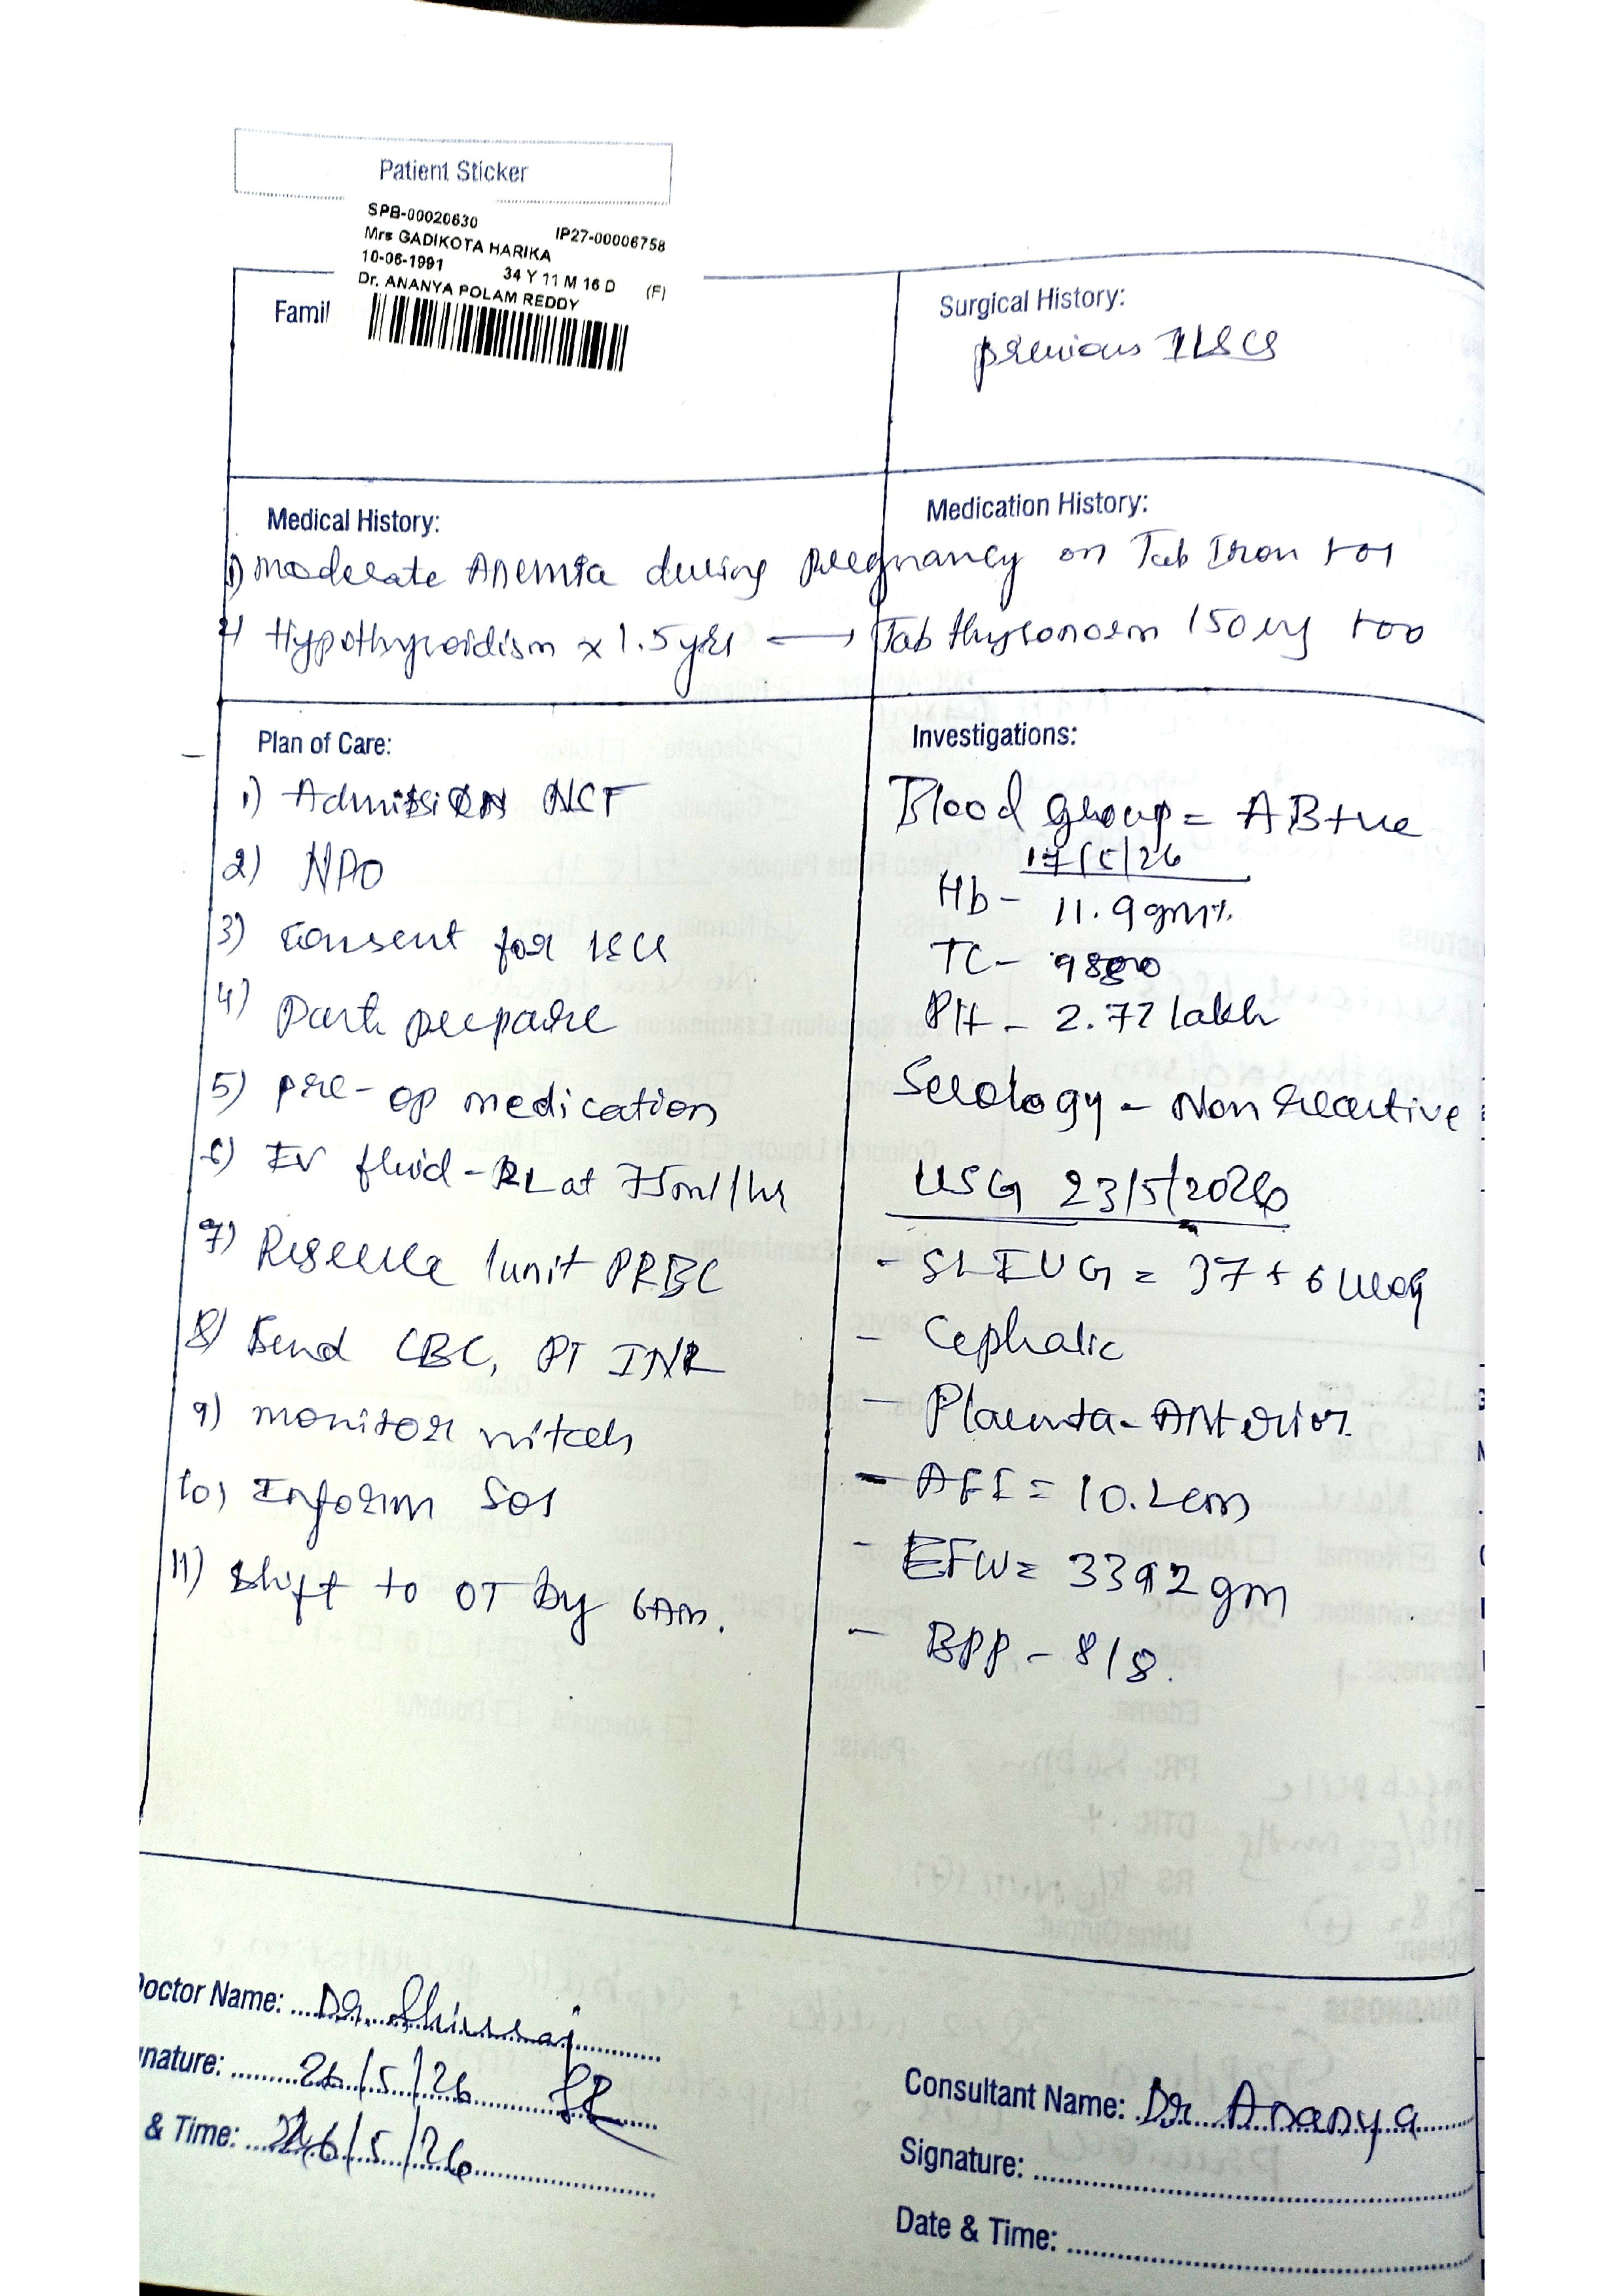 Patient Sticker
SPB-00020630 IP27-00006758
Mrs GADIKOTA HARIKA
10-06-1991 34 Y 11 M 16 D (F)
Dr. ANANYA POLAM REDDY
Famil
Surgical History:
previous 1LSCS
Medical History:
Medication History:
1) moderate Anemia during pregnancy on Tab Iron
2) Hypothyroidism x 1.5yrs → Tab thyronorm 150
Plan of Care:
1) Admission
2) NPO
3) Consent for LSCS
4) Part prepare
5) pre-op medication
6) IV fluid - RL at 75ml/hr
7) Reserve 1unit PRBC
8) Send CBC, PT INR
9) monitor vitals
10) Inform SOS
11) Shift to OT by 6Am.
Investigations:
Blood group = AB+ve
17/5/26
Hb - 11.9gm%
TC -
Plt - 2.72 lakh
Serology - Non Reactive
USG 23/5/2026
- SLIUG = 37+6
- Cephalic
- Placenta - Anterior
- AFI = 10.2cm
- EFW = 3392gm
- BPP - 8/8.
Doctor Name: Dr.
nature: 26/5/26
& Time: 26/5/26
Consultant Name: Dr Ananya
Signature:
Date & Time: